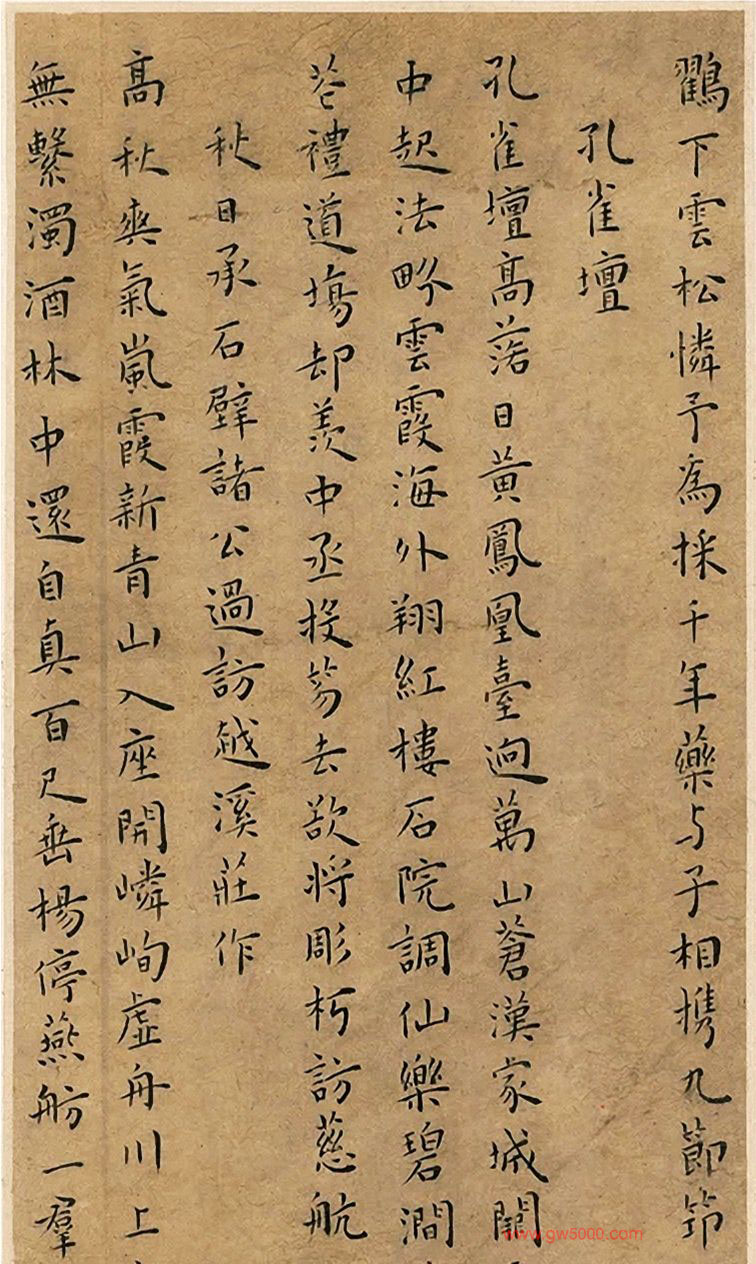 鸛下雲松憐予為採千年藥与子相携九節笻
孔雀壇
孔雀壇高落日黃鳳凰臺迥萬山蒼漢家城闕
中起法略雲霞海外翔紅樓石院調仙樂碧澗
苍禮道塲却羨中丞投笏去欲将彫朽訪慈航
秋日承石壁諸公過訪越溪莊作
高秋爽氣嵐霞新青山入座開嶙峋虛舟川上
無繫濁酒林中還自真百尺垂楊停燕舫一羣
www.gw5000.com